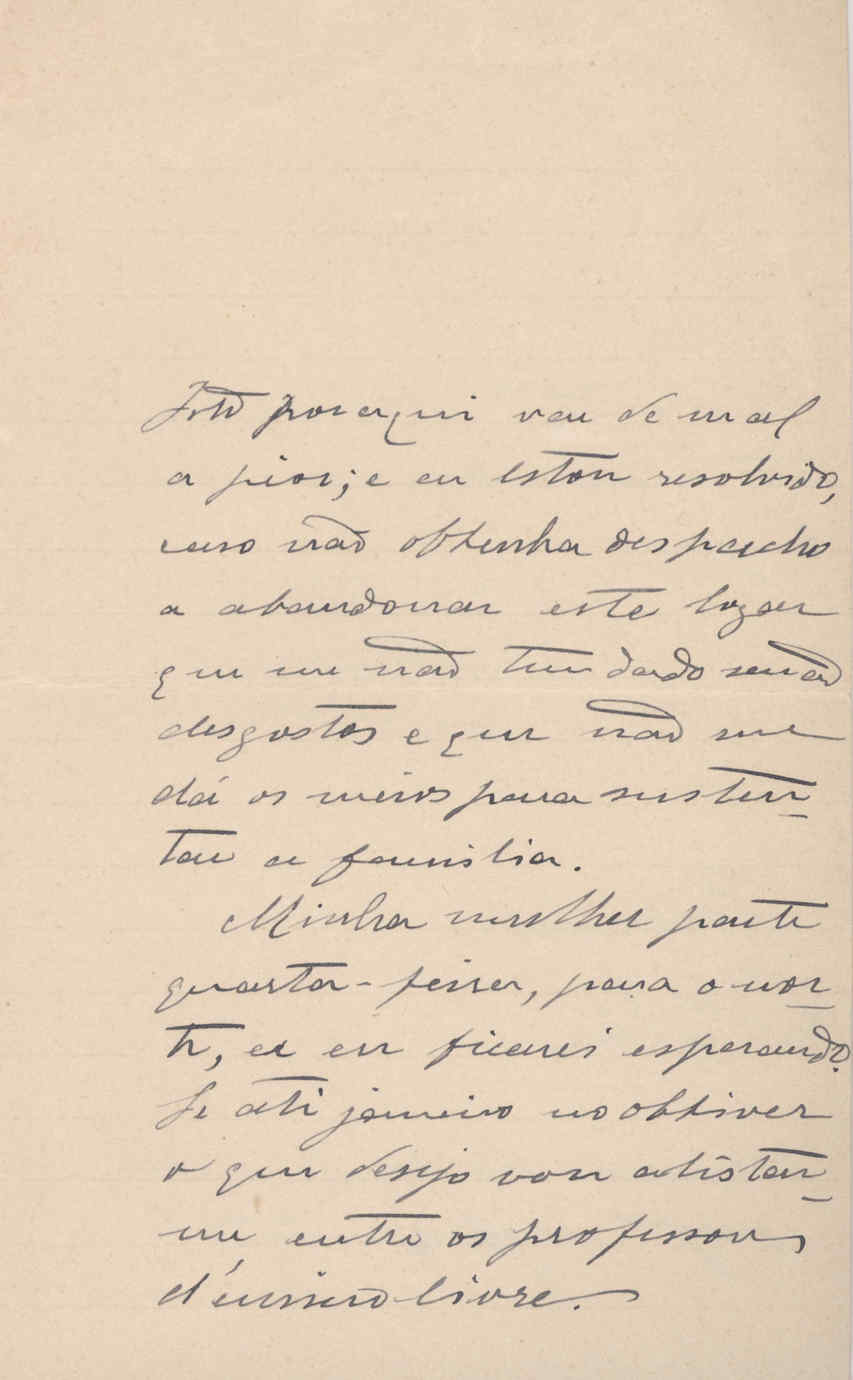 Isto por aqui vae de mal
a pior; e eu estou resolvido,
caso não obtenha despacho
a abandonar este logar
que me não tem dado senão
desgostos e que não me
dá os meios para susten-
tar a familia.
Minha mulher parte
quarta-feira, para o nor-
te, e eu ficarei esperando.
Se até janeiro no obtiver
o que desejo vou alistar-
me entre os professores
d'ensino livre.